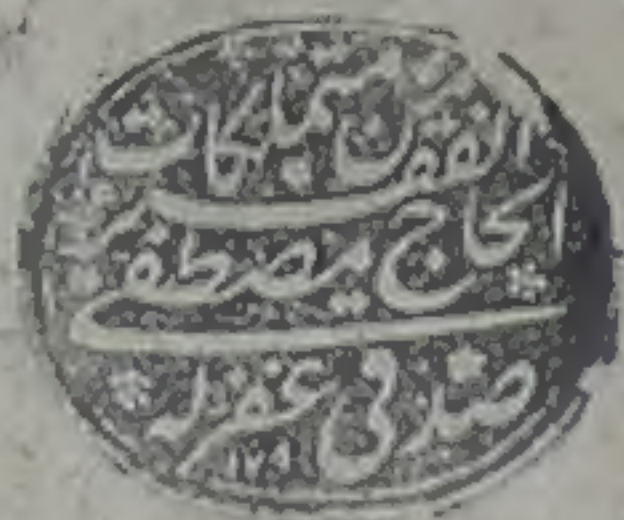 من متملكات
الفقير
الحاج مصطفى
صدقي غفر له
١٧٩